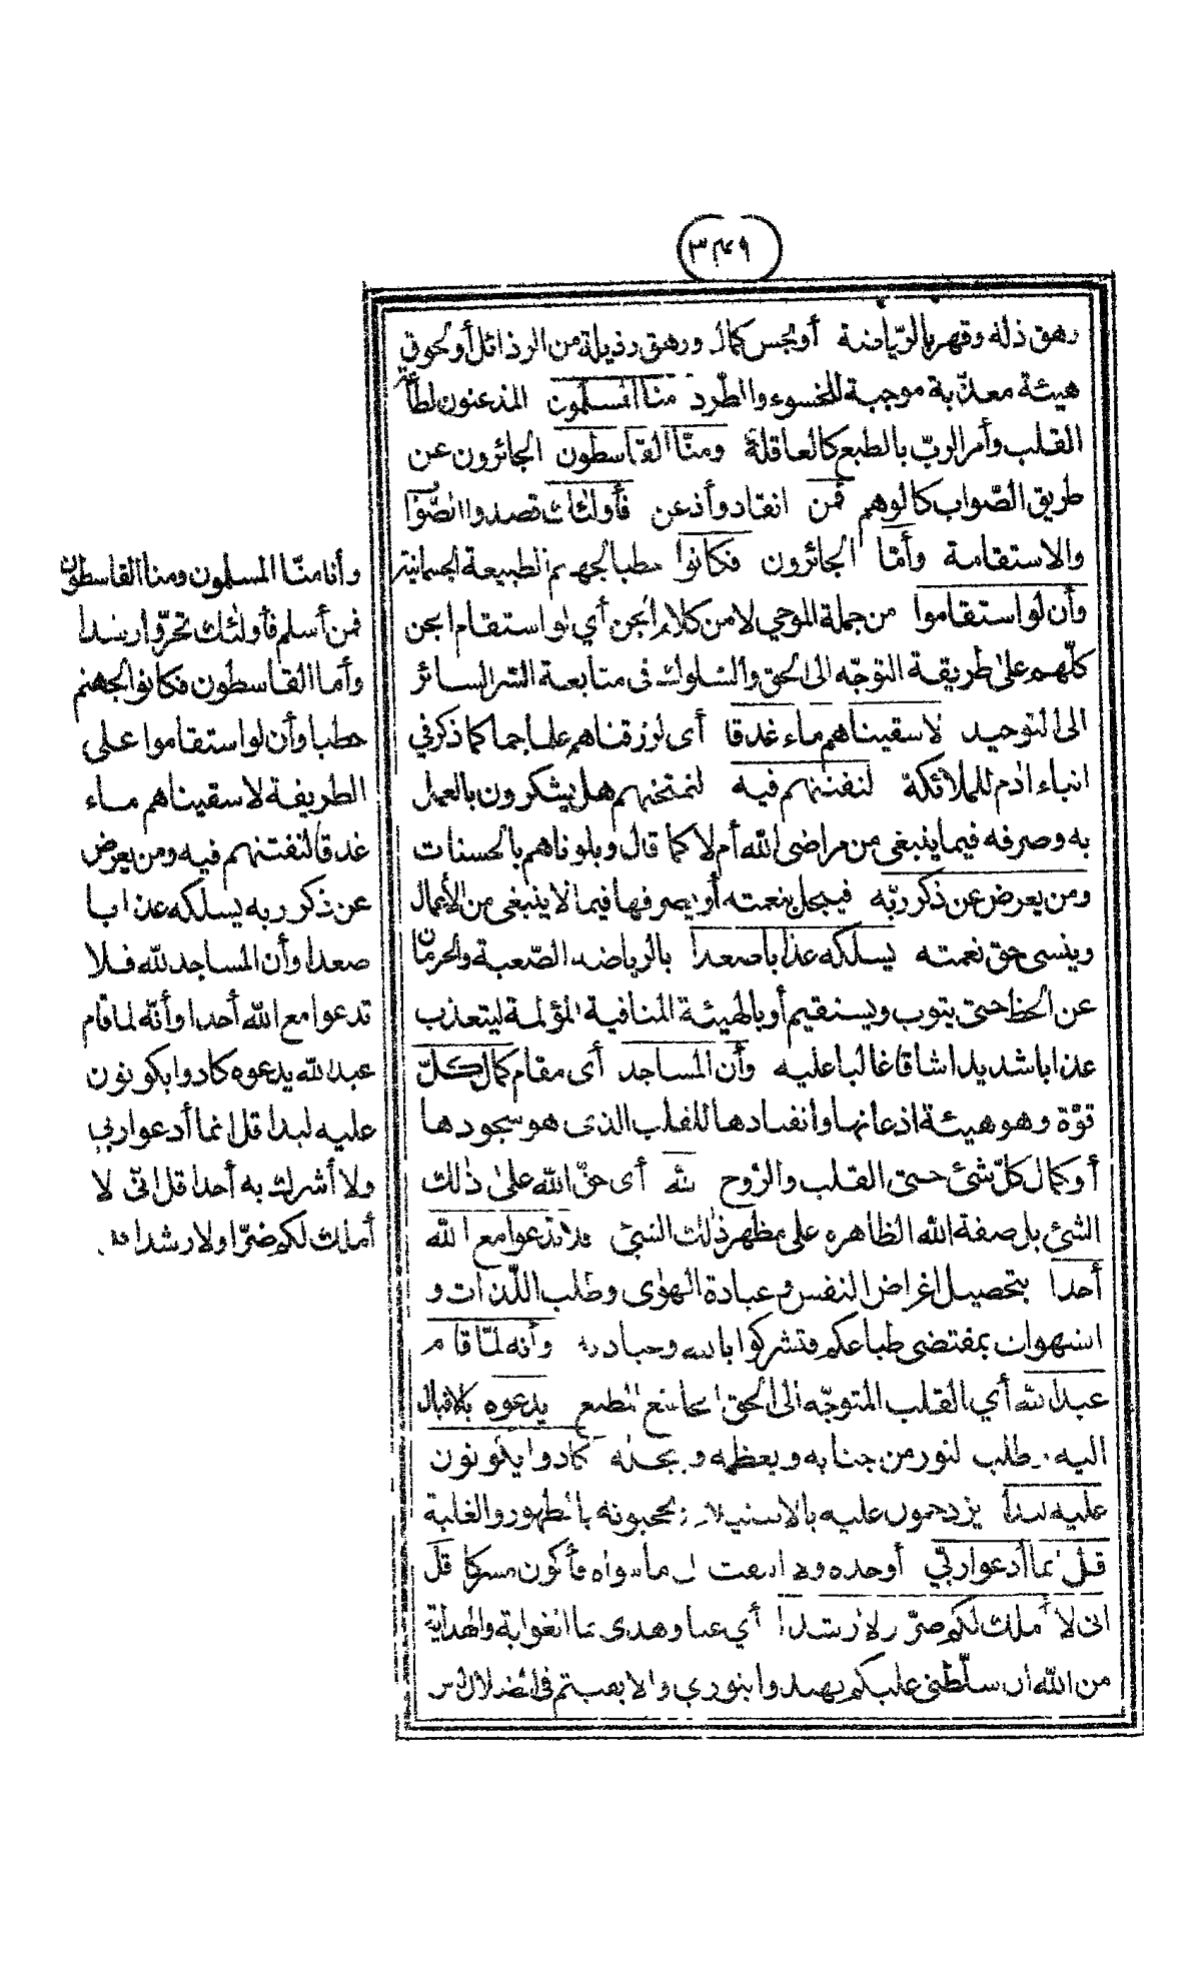 ٣٤٩
رهق ذلة وقهر بالرياضة أو بخس كمال ورهق رذيلة من الرذائل أو لحوق
هيئة معذّبة موجبة للخسوء والطّرد منا المسلمون المذعنون لطاعة
القلب وأمر الربّ بالطبع كالعاقلة ومنّا القاسطون الجائرون عن
طريق الصّواب كالوهم فمن انقاد وأذعن فأولئك قصدوا الصّواب
والاستقامة وأمّا الجائرون فكانوا حطبا لجهنم الطبيعة الجسمانية
وأن لو استقاموا من جملة الموحي لا من كلام الجن أي لو استقام الجن
كلّهم على طريقة التوجّه الى الحق والسّلوك فى متابعة السّر السائر
الى التوحيد لأسقيناهم ماء غدقا أى لرزقناهم علما جما كما ذكر في
انباء اٰدم للملائكة لنفتنهم فيه لنمتحنهم هل يشكرون بالعمل
به وصرفه فيما ينبغى من مراضى الله أم لا كما قال وبلوناهم بالحسنات
ومن يعرض عن ذكر ربّه فيبخل بنعمته أو يصرفها فيما لا ينبغى من الأعمال
وينسى حق نعمته يسلكه عذابا صعدا بالرياضة الصّعبة والحرمان
عن الحظ حتى يتوب ويستقيم أو بالهيئة المنافية المؤلمة ليتعذب
عذابا شديدا شاقا غالبا عليه وأن المساجد أى مقام كمال كلّ
قوّة وهو هيئة اذعانها وانقيادها للقلب الذى هو سجودها
أو كمال كلّ شئ حتى القلب والرّوح لله أى حقّ الله على ذٰلك
الشئ بل صفة الله الظاهره على مظهر ذٰلك الشئ فلا تدعوا مع الله
أحدا بتحصيل اغراض النفس و عبادة الهوٰى وطلب اللّذات و
الشهوات بمقتضى طباعكم فتشركوا بالله وعبادته وأنه لمّا قام
عبد الله أي القلب المتوجّه الى الحق يدعوه بالاقبال
اليه وطلب النور من جنابه ويعظمه و يجلّه كادوا يكونون
عليه لبدا يزدحمون عليه بالاستيلاء ويحجبونه بالظهور والغلبة
قل انما أدعوا ربّي أوحده ولا ألتفت الى ما سواه فأكون مشركا قل
انى لا أملك لكم ضرّا ولا رشدا أي غيا وهدى انما الغواية والهداية
من الله ان سلّطنى عليكم تهتدوا بنوري والا بقيتم فى الضلال ليس
وأنا منّا المسلمون ومنا القاسطون
فمن أسلم فأولئك تحرّوا رشدا
وأما القاسطون فكانوا لجهنم
حطبا وأن لو استقاموا على
الطريقة لاسقيناهم ماء
غدقا لنفتنهم فيه ومن يعرض
عن ذكر ربه يسلكه عذابا
صعدا وأن المساجد لله فلا
تدعوا مع الله أحدا وأنّه لما قام
عبد الله يدعوه كادوا يكونون
عليه لبدا قل انما أدعوا ربي
ولا أشرك به أحدا قل انّى لا
أملك لكم ضرّا ولا رشدا